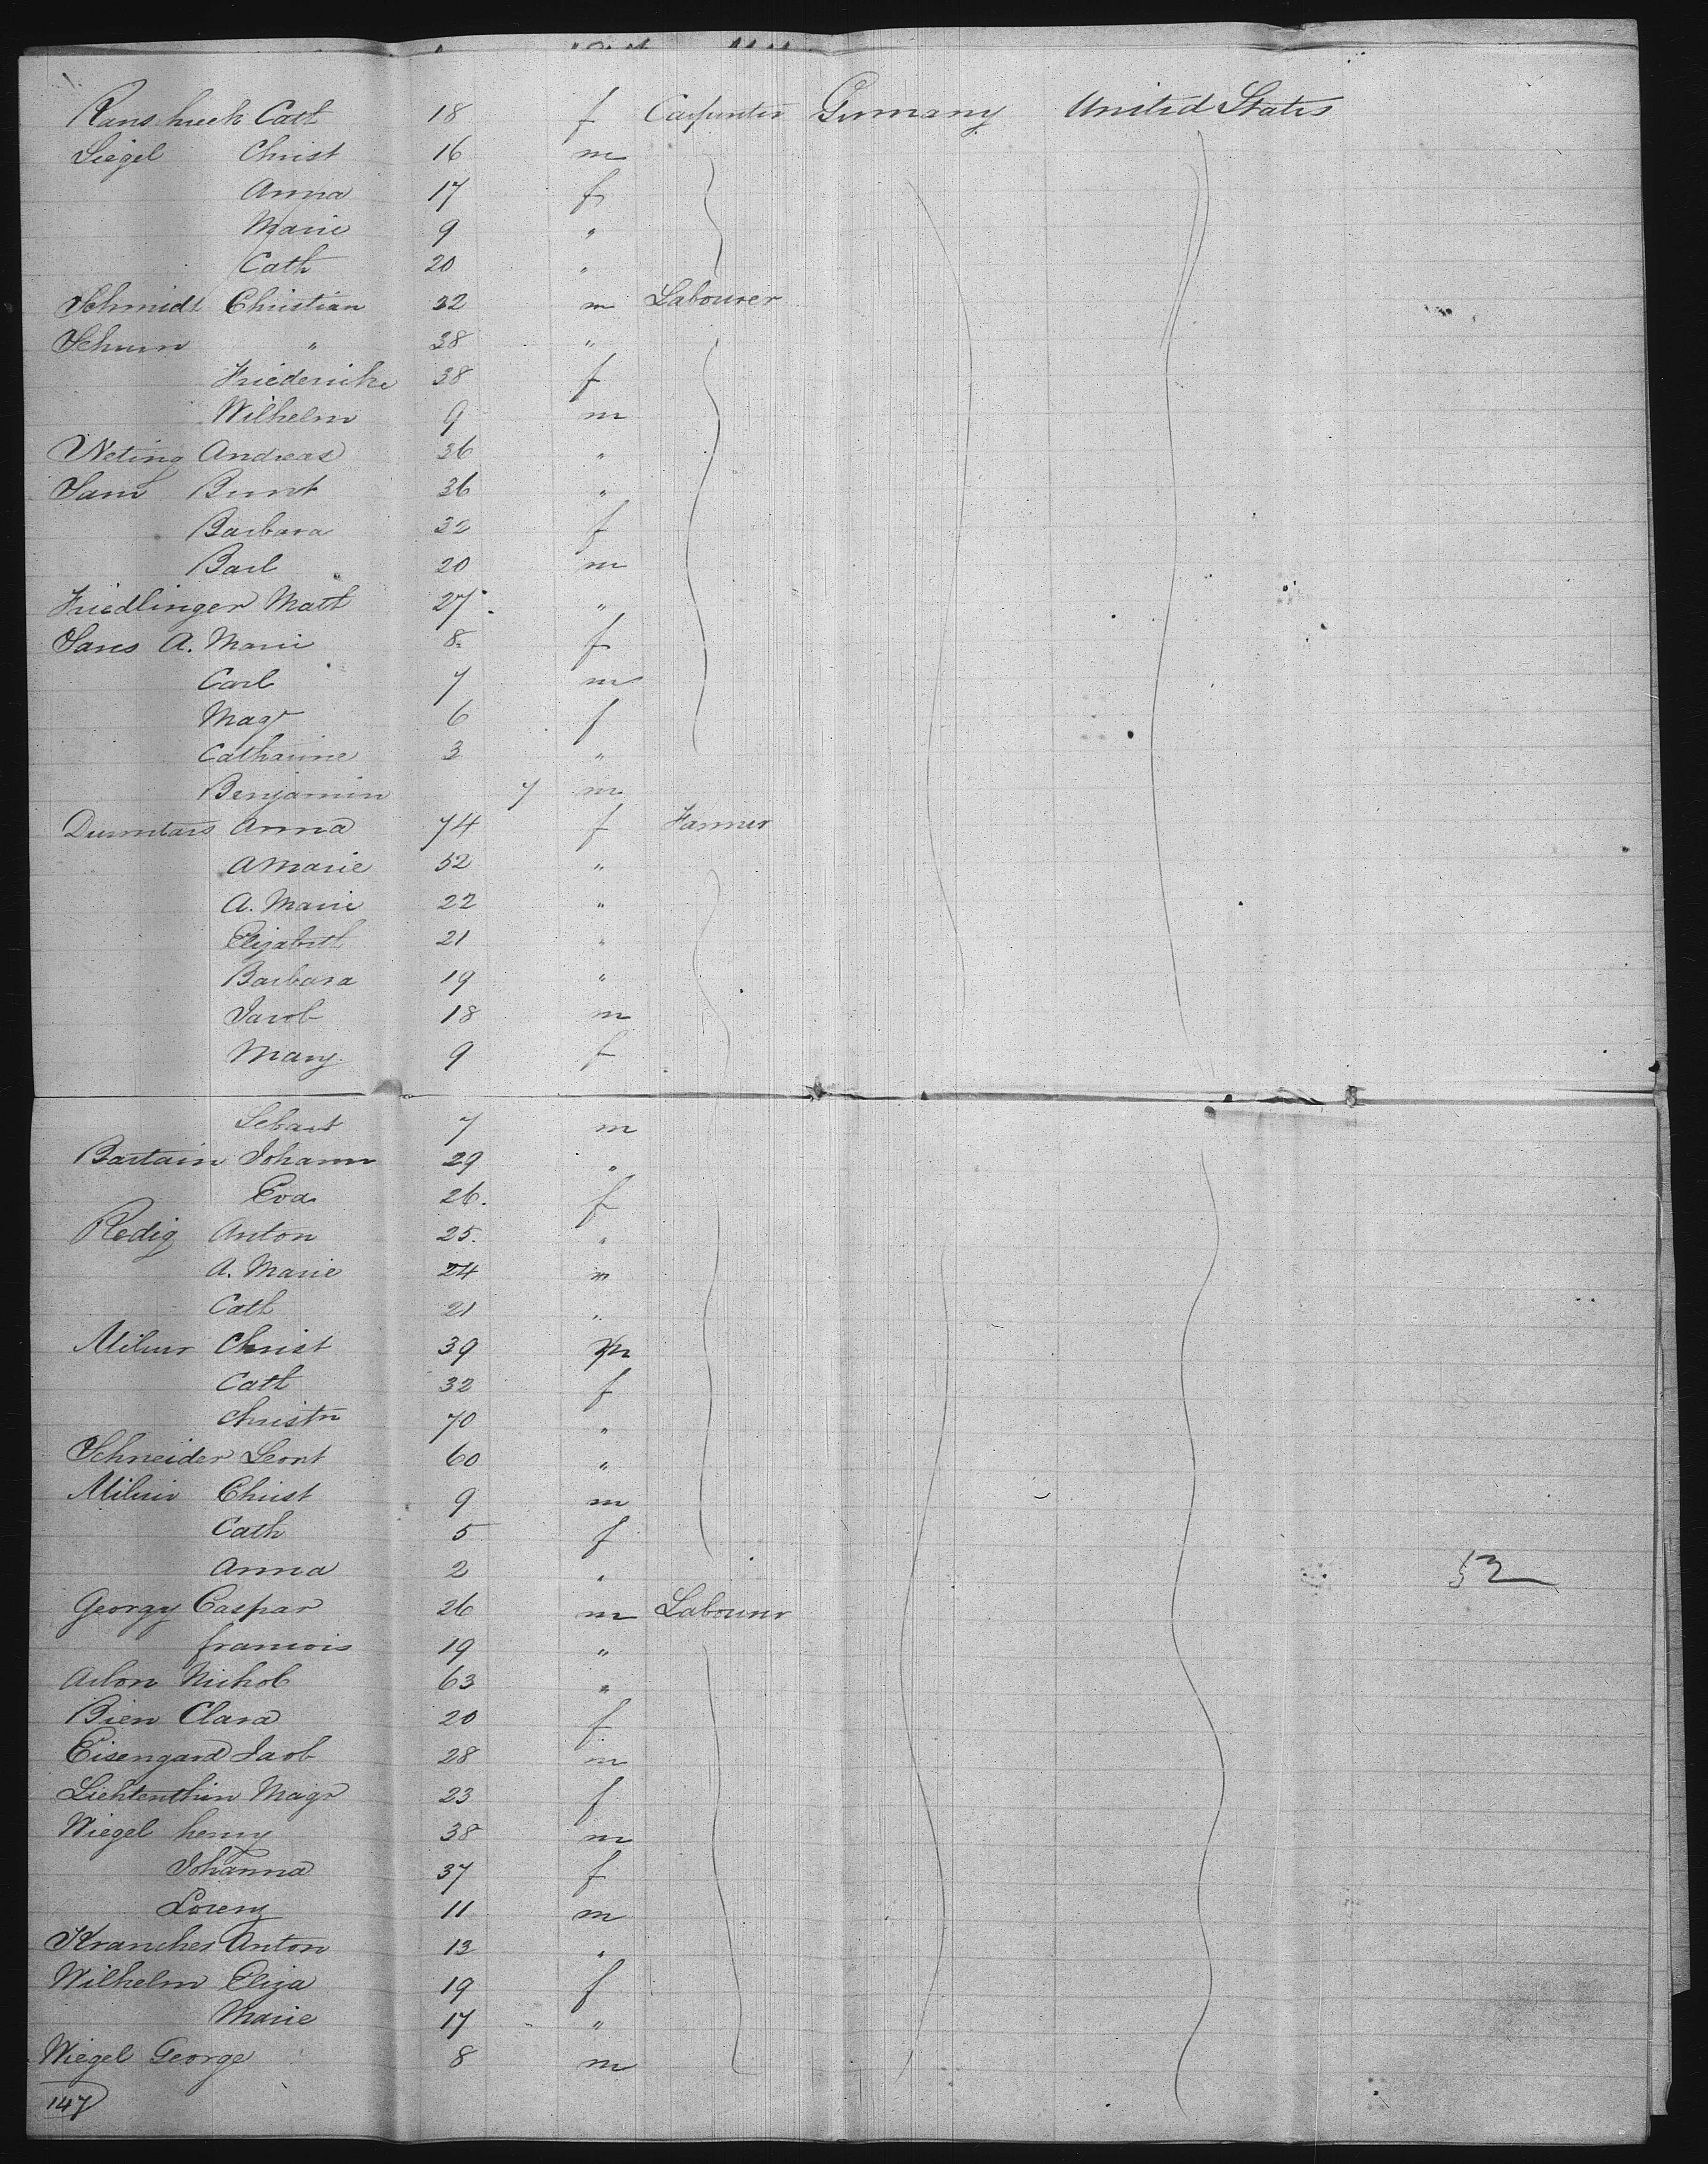 Ranshuck Cath 18 f Carpenter Germany United States
Siegel Christ 16 m
Anna 17 f
Marie 9 "
Cath 20 "
Schmidt Christian 32 m Labourer
Schum " 38 "
Friedericke 38 f
Wilhelm 9 m
Neting Andreas 36 "
Sam 36 "
Barbara 32 f
20 m
Friedlinger Math 27 "
A. Marie 8 f
Carl 7 m
Magr 6 f
Catharine 3 "
Benjamin 7 m
Anna 74 f Farmer
A Marie 52 "
A. Marie 22 "
Elizabeth 21 "
Barbara 19 "
Jacob 18 m
Mary 9 f
Sebast 7 m
Bartain Johann 29 "
Eva 26 f
Redig Anton 25 "
A. Marie 24 "
Cath 21 "
Christ 39 m
Cath 32 f
Christn 70 "
Schneider Leont 60 "
Christ 9 m
Cath 5 f
Anna 2 "
52
Georgy Caspar 26 m Labourer
francois 19 "
Arlon Nichol 63 "
Bien Clara 20 f
Eisengard Jacob 28 m
Lichtenthin Magr 23 f
Wiegel henry 38 m
Johanna 37 f
Lorenz 11 m
Kranches Anton 13 "
Wilhelm Eliza 19 f
Marie 17 "
Wiegel George 8 m
147